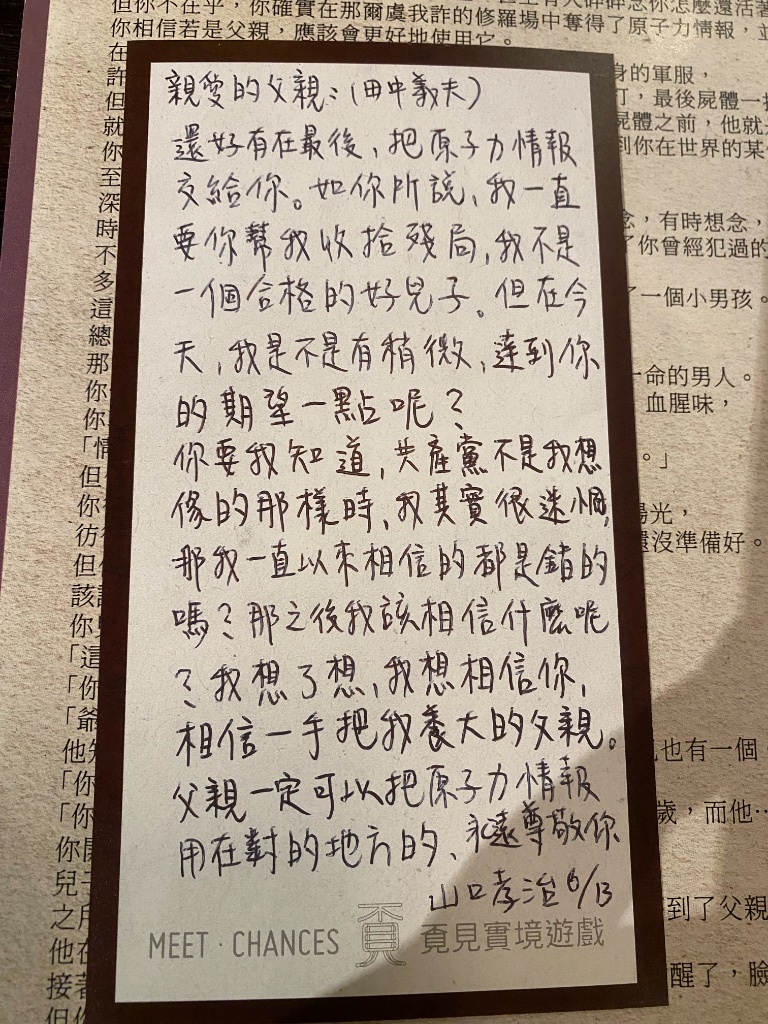 但你不在乎，你確實在那爾虞我詐的修羅場中奪得了原子力情報，並
你相信若是父親，應該會更好地使用它。
親愛的父親：(田中義夫)
還好有在最後，把原子力情報
交給你。如你所說，我一直
要你幫我收拾殘局，我不是
一個合格的好兒子。但在今
天，我是不是有稍微，達到你
的期望一點呢？
你要我知道，共產黨不是我想
像的那樣時，我其實很迷惘，
那我一直以來相信的都是錯的
嗎？那之後我該相信什麼呢
？我想了想，我想相信你，
相信一手把我養大的父親。
父親一定可以把原子力情報
用在對的地方的、永遠尊敬你
山口孝治 6/13
MEET · CHANCES 覓見實境遊戲
在
許
但
就
你
至
深
時
不
多
這
總
那
你
你
「情
但
你
彷
但
該
你
「這
「你
「爺
他知
「你
「你
你開
兒子
之所
他在
接著
但你
身的軍服，
打，最後屍體一
屍體之前，他就
到你在世界的某
念，有時想念，
了你曾經犯過的
了一個小男孩。
一命的男人。
血腥味，
。」
陽光，
還沒準備好。
也有一個
歲，而他…
到了父親
醒了，臉